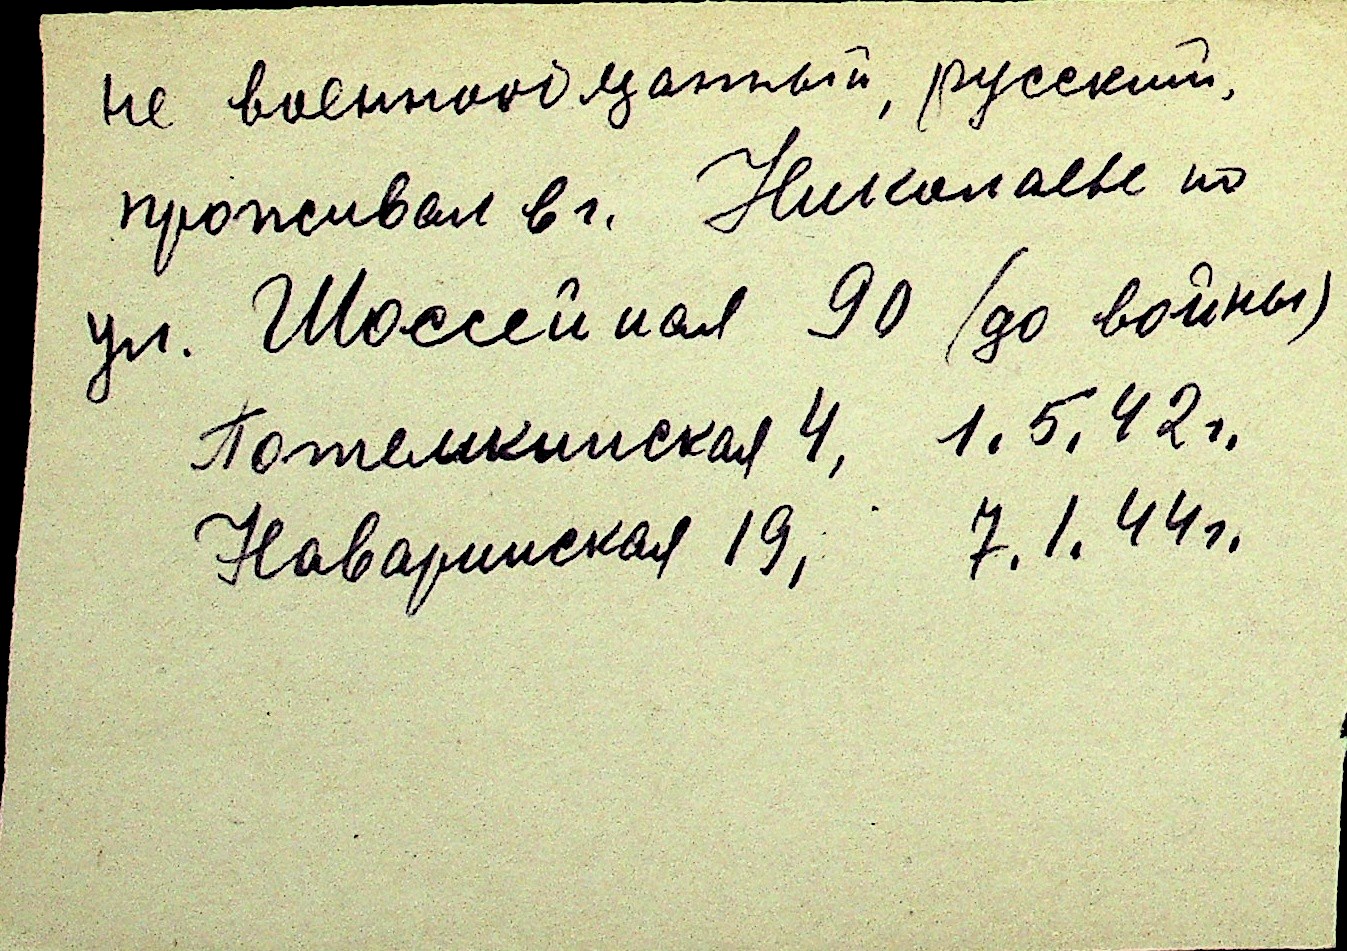 не военнообязанный, русский,
проживал в г. Николаеве по
ул. Шоссейная 90 (до войны)
Потемкинская 4, 1.5.42г.
Наваринская 19, 7.1.44г.